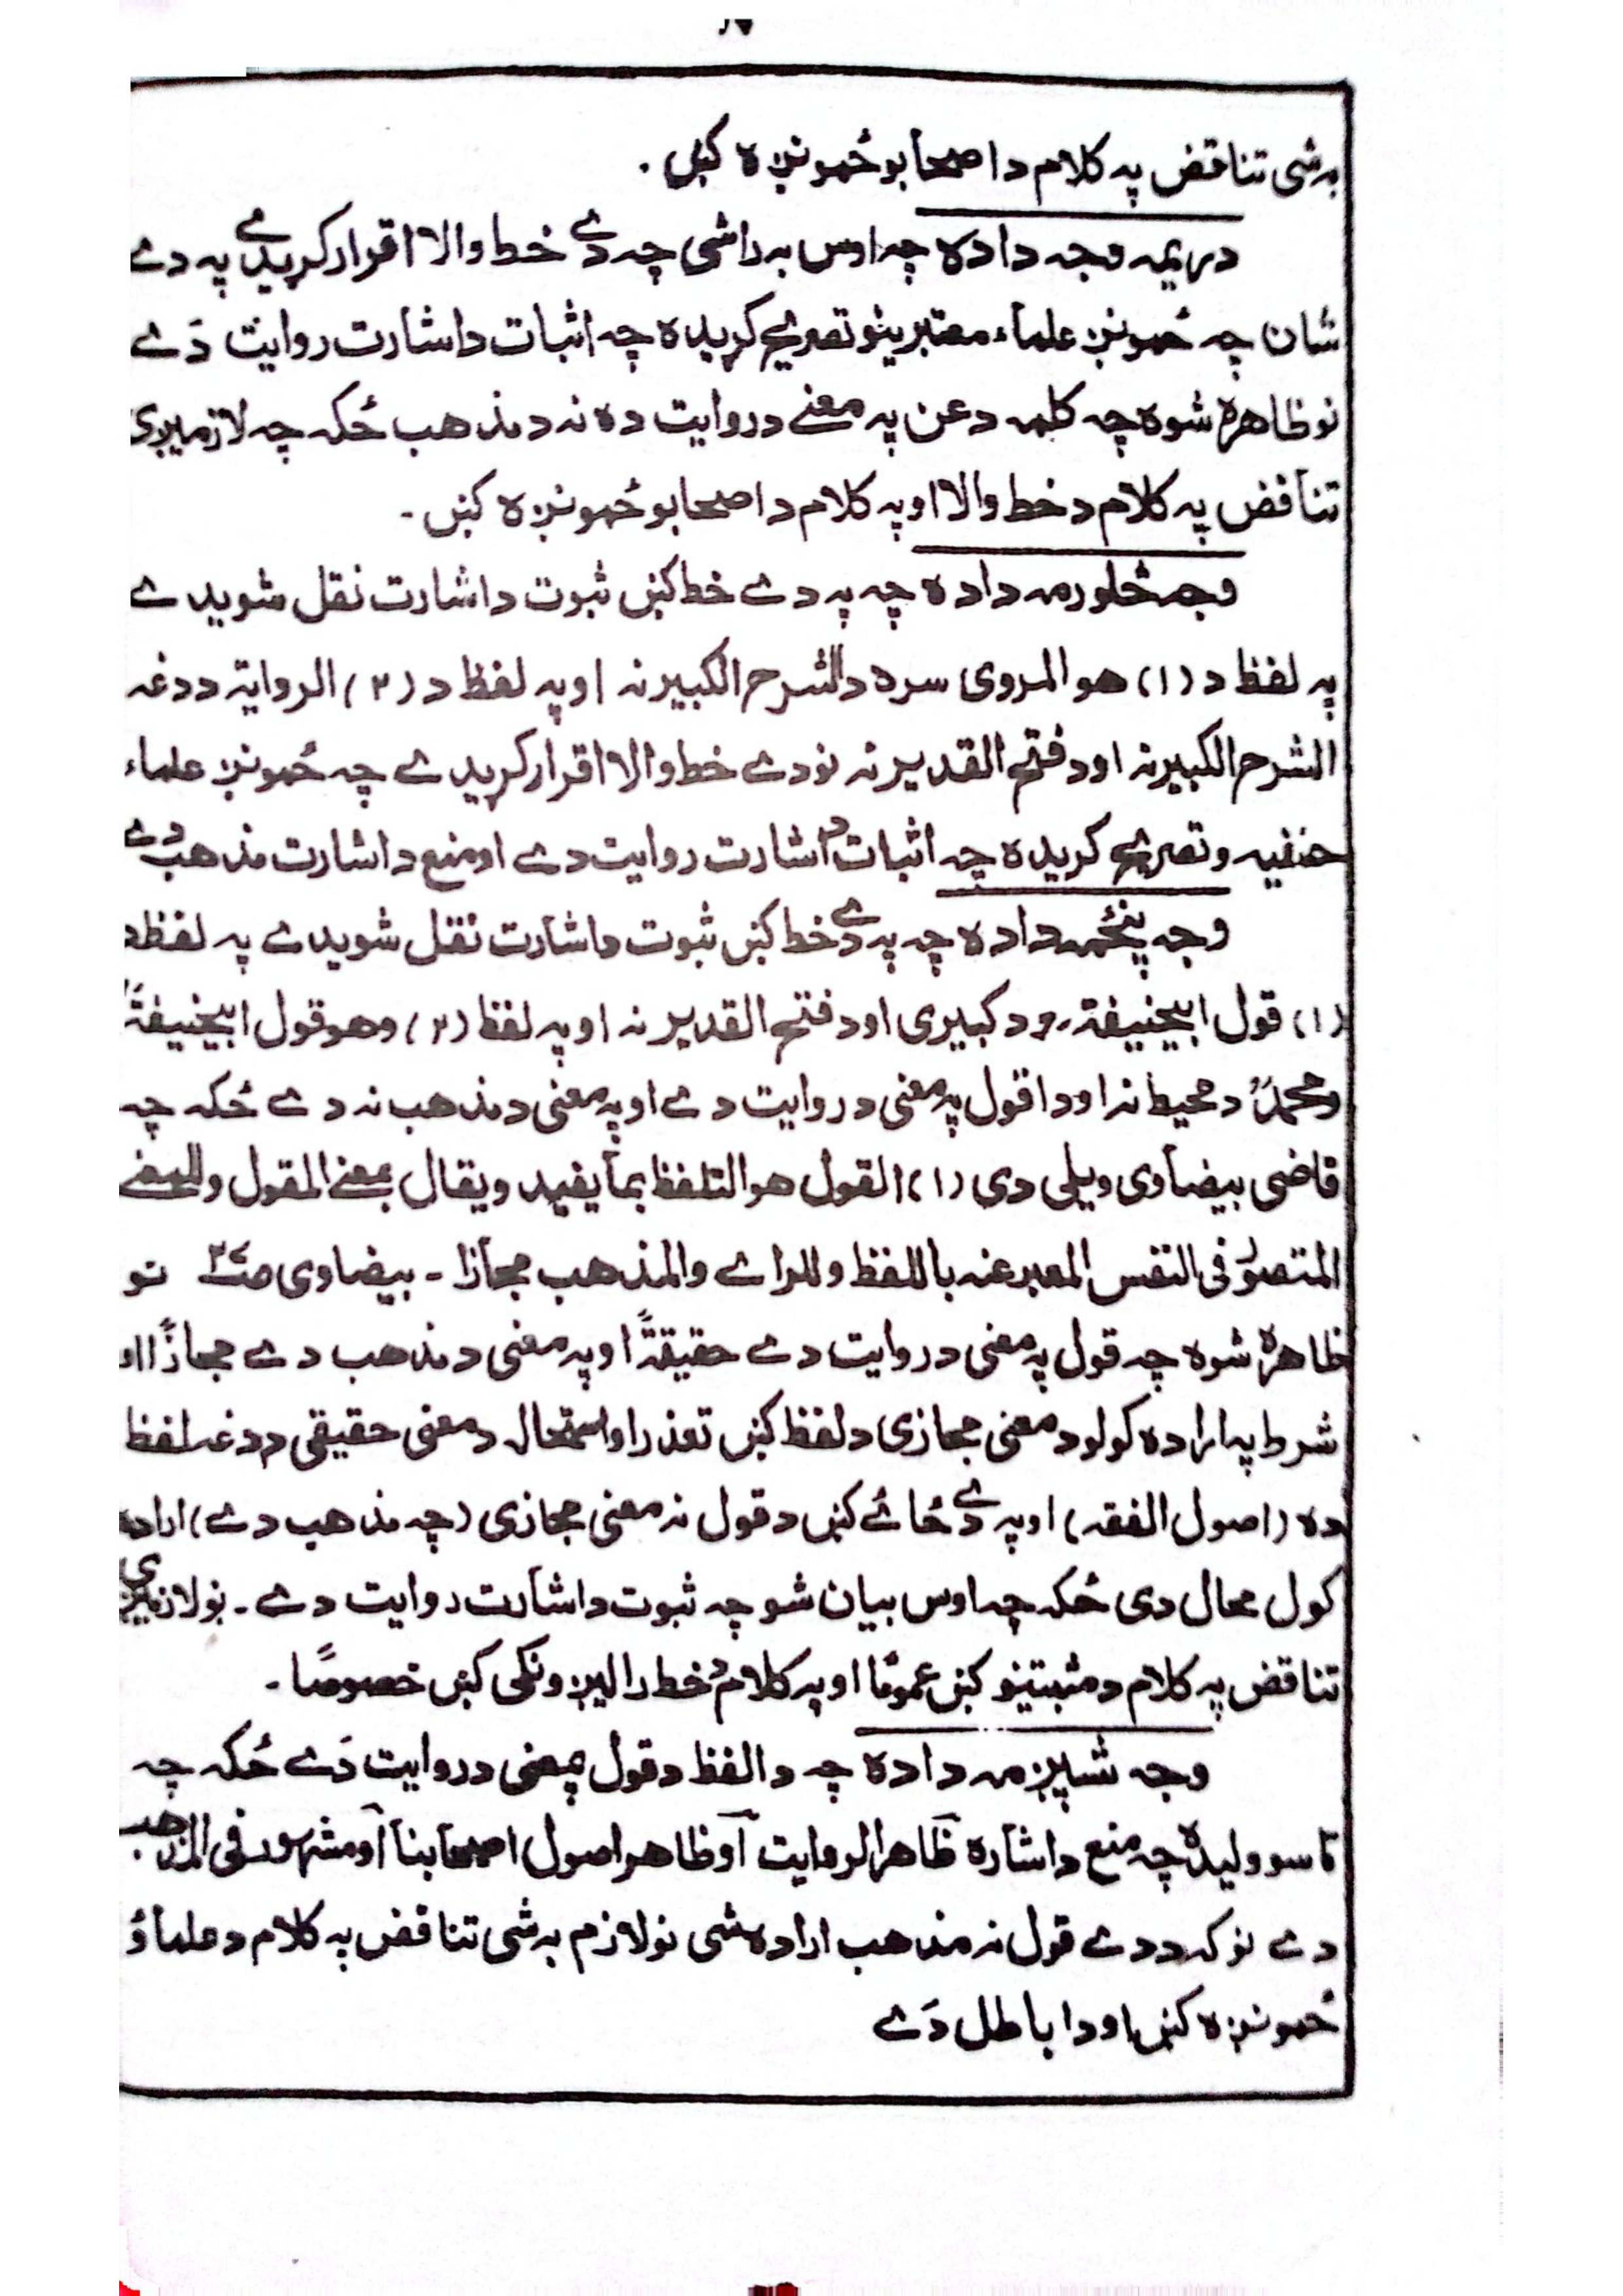 به شی تناقض په کلام د اصحابو ځمونږه کښ ۰
دریمه وجه داده چه اوس به راشی چه دے خط والا اقرار کړیدے په دے
شان چه ځمونږ علماء معتبرینو تصریح کړیده چه اثبات د اشارت روایت دَے
نو ظاهره شوه چه کلمه د عن په معنے د روایت ده نه د مذهب ځکه چه لازمیږی
تناقض په کلام د خط والا او په کلام د اصحابو ځمونږه کښ ۔
وجه څلورمه داده چه په دے خط کښ ثبوت د اشارت نقل شویدے
په لفظ د (۱) هو المروی سره د الشرح الکبیر نه او په لفظ د (۲) الروایة د دغه
الشرح الکبیر نه او د فتح القدیر نه نو دے خط والا اقرار کړیدے چه ځمونږ علماء
حنفیه و تصریح کړیده چه اثبات د اشارت روایت دے او منع د اشارت مذهب دے
وجه پنځمه داده چه په دے خط کښ ثبوت د اشارت نقل شویدے په لفظ د
(۱) قول ابیحنیفة رح د کبیری او د فتح القدیر نه او په لفظ (۲) وهو قول ابیحنیفةؒ
ومحمدؒ د محیط نه او دا قول په معنی د روایت دے او په معنی د مذهب نه دے ځکه چه
قاضی بیضاوی ویلی دی (۱) القول هو التلفظ بما یفید ویقال بمعنے المقول وللمعنے
المتصور فی النفس المعبر عنه باللفظ وللراے والمذهب مجازا ۔ بیضاوی نو
ظاهره شوه چه قول په معنی د روایت دے حقیقةً او په معنی د مذهب دے مجازًا او
شرط په اراده کولو د معنی مجازی د لفظ کښ تعذر او استحاله د معنی حقیقی د دغه لفظ
ده (اصول الفقه) او په دے ځائے کښ د قول نه معنی مجازی (چه مذهب دے) اراده
کول محال دی ځکه چه اوس بیان شو چه ثبوت د اشارت روایت دے ۔ نو لازمیږی
تناقض په کلام د مثبتینو کښ عمومًا او په کلام د خط رالیږونکی کښ خصوصًا ۔
وجه شپږمه داده چه دا لفظ د قول پمعنی د روایت دَے ځکه چه
تاسو ولیده چه منع د اشاره ظاهر الروایت او ظاهر اصول اصحابنا او مشهور فی المذهب
دے نو که د دے قول نه مذهب اراده شی نو لازم به شی تناقض په کلام د علماؤ
ځمونږه کښ او دا باطل دَے